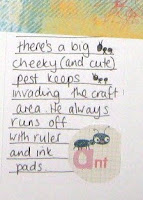 there's a big
cheeky (and cute)
pest keeps
invading the craft
area. He always
runs off
with ruler
and ink
pads
ant